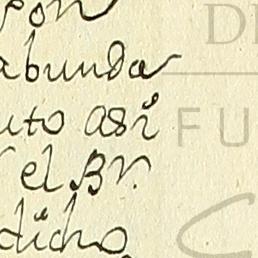 pon
abunda
uto así
el Br.
dicho
DE
FU
C